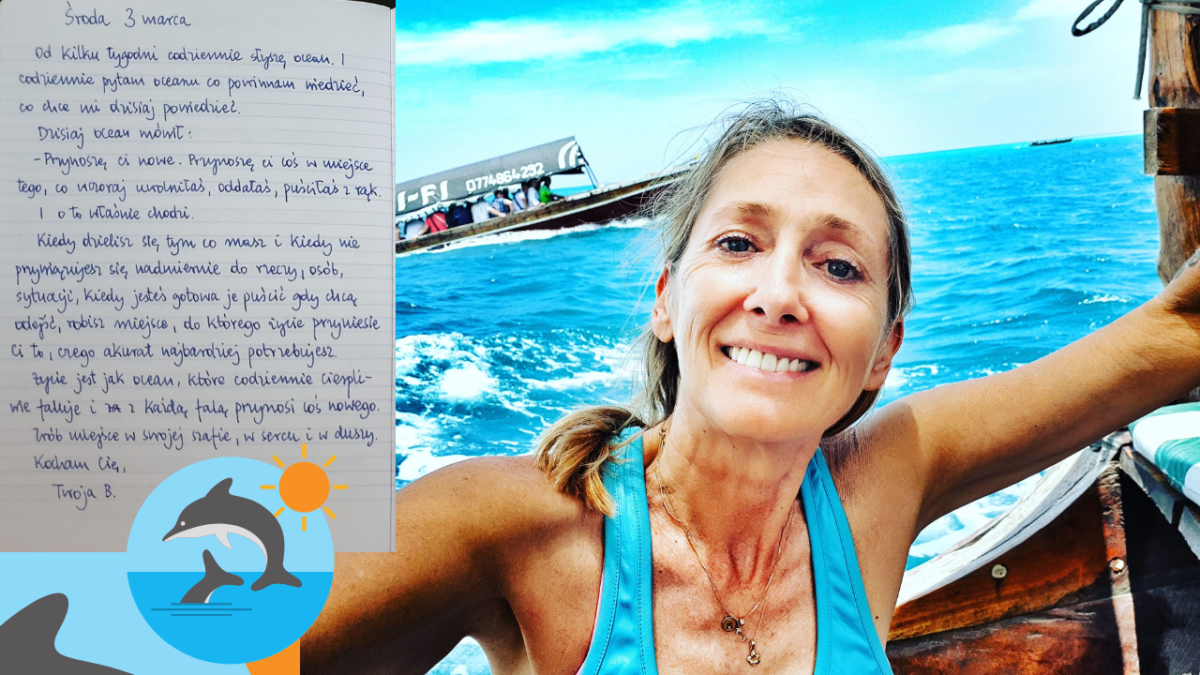 Środa 3 marca
Od kilku tygodni codziennie słyszę ocean. I
codziennie pytam oceanu co powinnam wiedzieć,
co chce mi dzisiaj powiedzieć.
Dzisiaj ocean mówił:
- Przynoszę ci nowe. Przynoszę ci coś w miejsce
tego, co wczoraj uwolniłaś, oddałaś, puściłaś z rąk.
I o to właśnie chodzi.
Kiedy dzielisz się tym co masz i kiedy nie
przywiązujesz się nadmiernie do rzeczy, osób,
sytuacji, kiedy jesteś gotowa je puścić gdy chcą
odejść, robisz miejsce, do którego życie przyniesie
Ci to, czego akurat najbardziej potrzebujesz.
Życie jest jak ocean, które codziennie cierpli-
wie faluje i z każdą falą przynosi coś nowego.
Zrób miejsce w swojej szafie, w sercu i w duszy.
Kocham Cię,
Twoja B.
I-FI 0774864292